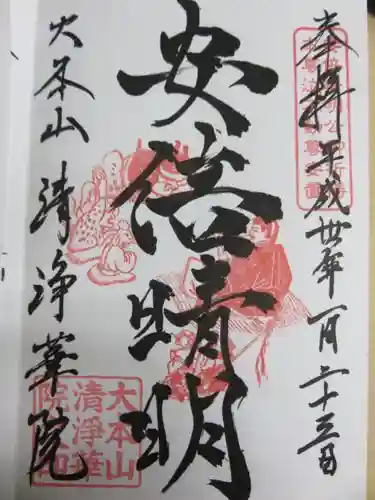 奉拝 平成卅年一月二十三日
安倍晴明
大本山 清浄華院
大本山
清浄華
院